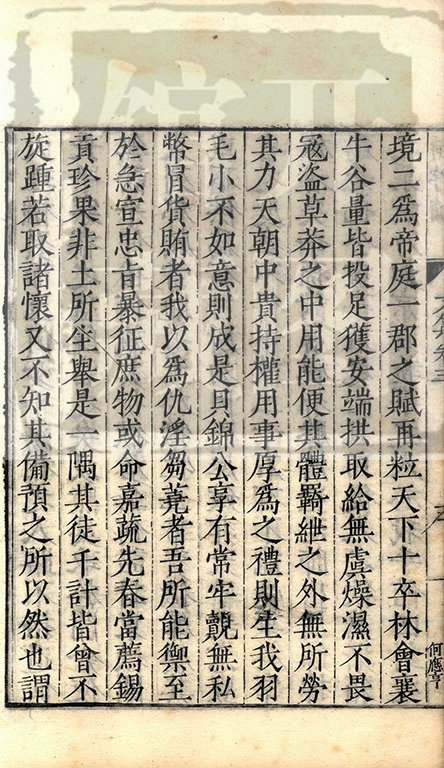 境二為帝庭一郡之賦再粒天下十卒林會襄
牛谷量皆投足獲安端拱取給無虞燥濕不畏
寇盜草莽之中用能便其體羇紲之外無所勞
其力天朝中貴持權用事厚為之禮則生我羽
毛小不如意則成是貝錦公享有常牢覿無私
幣冒貨賄者我以為仇淫芻蕘者吾所能禦至
於急宣忠旨暴征庶物或命嘉蔬先春當薦錫
貢珍果非土所生舉是一隅其徒千計皆曾不
旋踵若取諸懷又不知其備預之所以然也謂
何應亨